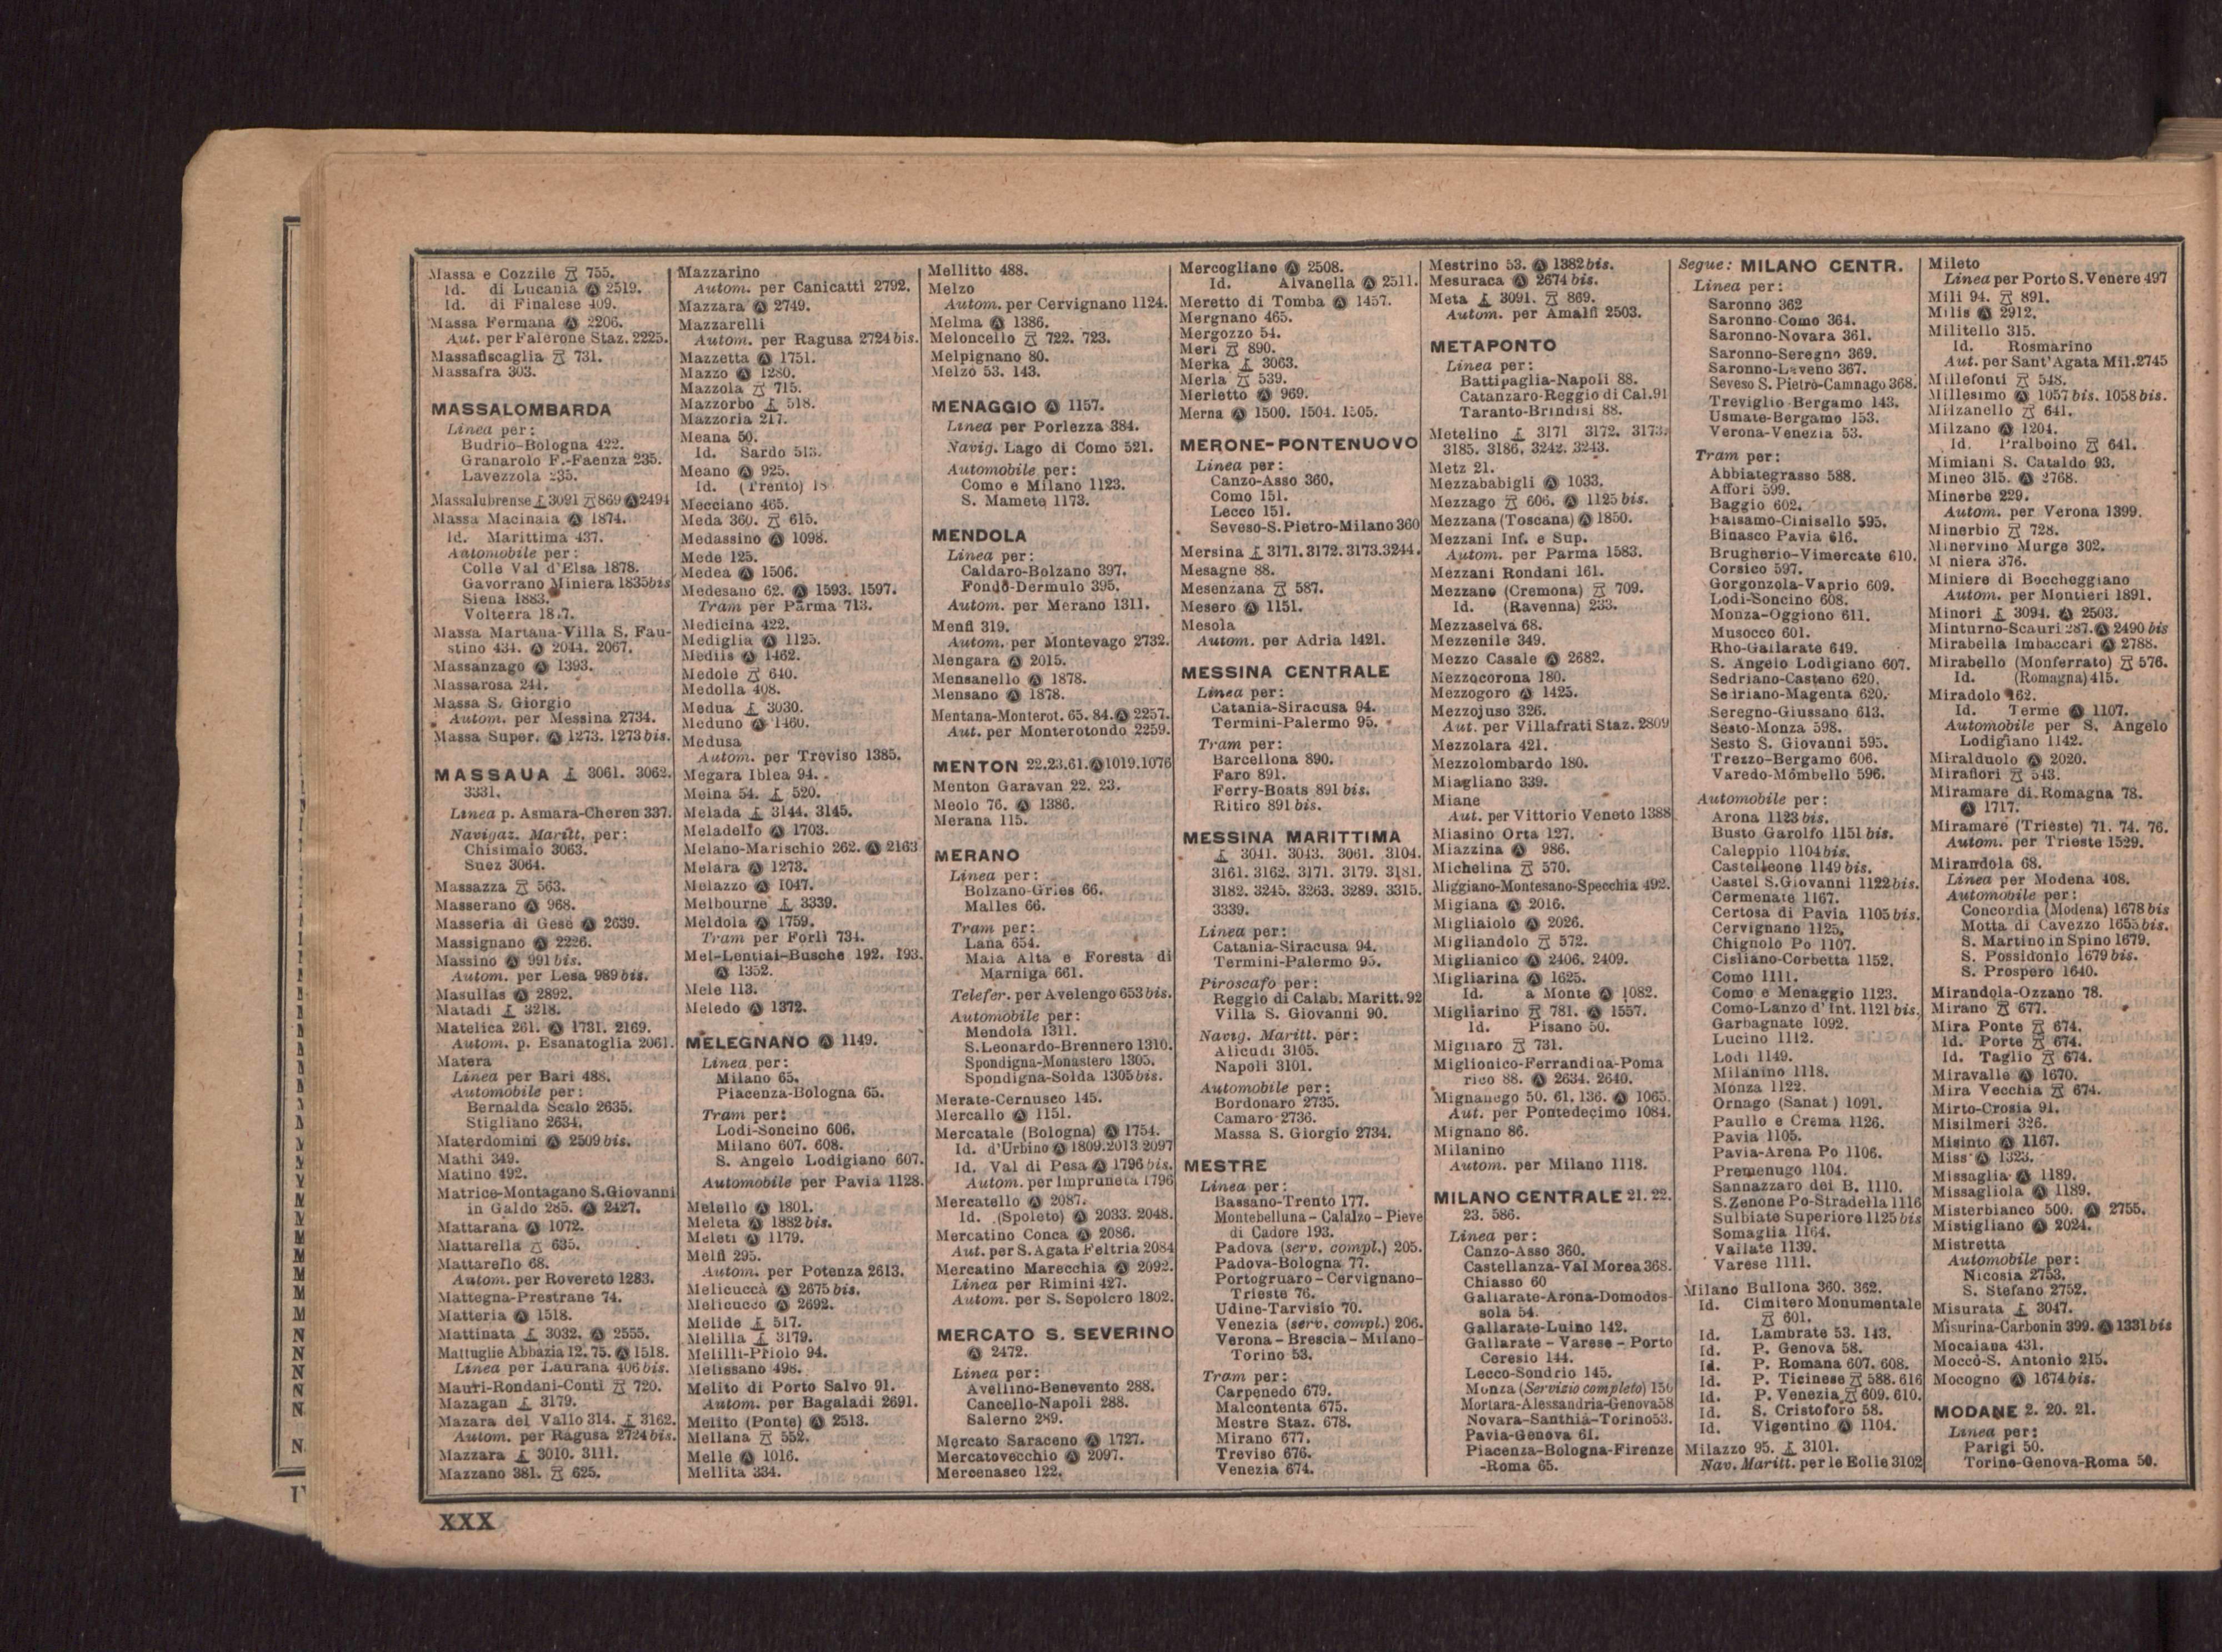 Massa e Cozzile 755.
Id. di Lucania Ⓐ 2519.
Id. di Finalese 409.
Massa Fermana Ⓐ 2206.
Aut. per Falerone Staz. 2225.
Massafiscaglia 731.
Massafra 303.
MASSALOMBARDA
Linea per:
Budrio-Bologna 422.
Granarolo F.-Faenza 235.
Lavezzola 235.
Massalubrense 3091 869 Ⓐ 2494
Massa Macinaia Ⓐ 1874.
Id. Marittima 437.
Automobile per:
Colle Val d'Elsa 1878.
Gavorrano Miniera 1835bis
Siena 1883.
Volterra
Massa Martana-Villa S. Fau-
stino 434. Ⓐ 2044. 2067.
Massanzago Ⓐ 1393.
Massarosa 241.
Massa S. Giorgio
Autom. per Messina 2734.
Massa Super. Ⓐ 1273. 1273bis.
MASSAUA 3061. 3062.
3331.
Linea p. Asmara-Cheren 337.
Navigaz. Maritt. per:
Chisimaio 3063.
Suez 3064.
Massazza 563.
Masserano Ⓐ 968.
Masseria di Gesè Ⓐ 2639.
Massignano Ⓐ 2226.
Massino Ⓐ 991bis.
Autom. per Lesa 989bis.
Masullas Ⓐ 2892.
Matadi 3218.
Matelica 261. Ⓐ 1731. 2169.
Autom. p. Esanatoglia 2061.
Matera
Linea per Bari 488.
Automobile per:
Bernalda Scalo 2635.
Stigliano 2634.
Materdomini Ⓐ 2509bis.
Mathi 349.
Matino 492.
Matrice-Montagano S.Giovanni
in Galdo 285. Ⓐ 2427.
Mattarana Ⓐ 1072.
Mattarella 635.
Mattarello 68.
Autom. per Rovereto 1283.
Mattegna-Prestrane 74.
Matteria Ⓐ 1518.
Mattinata 3032. Ⓐ 2555.
Mattuglie Abbazia 12. 75. Ⓐ 1518.
Linea per Laurana 406bis.
Mauri-Rondani-Conti 720.
Mazagan 3179.
Mazara del Vallo 314. 3162.
Autom. per Ragusa 2724bis.
Mazzara 3010. 3111.
Mazzano 381. 625.
Mazzarino
Autom. per Canicattì 2792.
Mazzara Ⓐ 2749.
Mazzarelli
Autom. per Ragusa 2724bis.
Mazzetta Ⓐ 1751.
Mazzo Ⓐ 1280.
Mazzola 715.
Mazzorbo 518.
Mazzoria 217.
Meana 50.
Id. Sardo 513.
Meano Ⓐ 925.
Id. (Trento)
Mecciano 465.
Meda 360. 615.
Medassino Ⓐ 1098.
Mede 125.
Medea Ⓐ 1506.
Medesano 62. Ⓐ 1593. 1597.
Tram per Parma 713.
Medicina 422.
Mediglia Ⓐ 1125.
Mediis Ⓐ 1462.
Medole 640.
Medolla 408.
Medua 3030.
Meduno Ⓐ 1460.
Medusa
Autom. per Treviso 1385.
Megara Iblea 94.
Meina 54. 520.
Melada 3144. 3145.
Meladello Ⓐ 1703.
Melano-Marischio 262. Ⓐ 2163
Melara Ⓐ 1273.
Melazzo Ⓐ 1047.
Melbourne 3339.
Meldola Ⓐ 1759.
Tram per Forlì 734.
Mel-Lentiai-Busche 192. 193.
Ⓐ 1352.
Mele 113.
Meledo Ⓐ 1372.
MELEGNANO Ⓐ 1149.
Linea per:
Milano 65.
Piacenza-Bologna 65.
Tram per:
Lodi-Soncino 606.
Milano 607. 608.
S. Angelo Lodigiano 607.
Automobile per Pavia 1128.
Melello Ⓐ 1801.
Meleta Ⓐ 1882bis.
Meleti Ⓐ 1179.
Melfi 295.
Autom. per Potenza 2613.
Melicuccà Ⓐ 2675bis.
Melicucco Ⓐ 2692.
Melide 517.
Melilla 3179.
Melilli-Priolo 94.
Melissano 498.
Melito di Porto Salvo 91.
Autom. per Bagaladi 2691.
Melito (Ponte) Ⓐ 2513.
Mellana 552.
Melle Ⓐ 1016.
Mellita 334.
Mellitto 488.
Melzo
Autom. per Cervignano 1124.
Melma Ⓐ 1386.
Meloncello 722. 723.
Melpignano 80.
Melzo 53. 143.
MENAGGIO Ⓐ 1157.
Linea per Porlezza 384.
Navig. Lago di Como 521.
Automobile per:
Como e Milano 1123.
S. Mamete 1173.
MENDOLA
Linea per:
Caldaro-Bolzano 397.
Fondo-Dermulo 395.
Autom. per Merano 1311.
Menfi 319.
Autom. per Montevago 2732.
Mengara Ⓐ 2015.
Mensanello Ⓐ 1878.
Mensano Ⓐ 1878.
Mentana-Monterot. 65. 84. Ⓐ 2257.
Aut. per Monterotondo 2259.
MENTON 22.23.61. Ⓐ 1019.1076
Menton Garavan 22. 23.
Meolo 76. Ⓐ 1386.
Merana 115.
MERANO
Linea per:
Bolzano-Gries 66.
Malles 66.
Tram per:
Lana 654.
Maia Alta e Foresta di
Marniga 661.
Telefer. per Avelengo 653bis.
Automobile per:
Mendola 1311.
S.Leonardo-Brennero 1310.
Spondigna-Monastero 1305.
Spondigna-Solda 1305bis.
Merate-Cernusco 145.
Mercallo Ⓐ 1151.
Mercatale (Bologna) Ⓐ 1754.
Id. d'Urbino Ⓐ 1809.2013 2097
Id. Val di Pesa Ⓐ 1796bis.
Autom. per Impruneta 1796
Mercatello Ⓐ 2087.
Id. (Spoleto) Ⓐ 2033. 2048.
Mercatino Conca Ⓐ 2086.
Aut. per S. Agata Feltria 2084
Mercatino Marecchia Ⓐ 2092.
Linea per Rimini 427.
Autom. per S. Sepolcro 1802.
MERCATO S. SEVERINO
Ⓐ 2472.
Linea per:
Avellino-Benevento 288.
Cancello-Napoli 288.
Salerno 289.
Mercato Saraceno Ⓐ 1727.
Mercatovecchio Ⓐ 2097.
Mercenasco 122.
Mercogliano Ⓐ 2508.
Id. Alvanella Ⓐ 2511.
Meretto di Tomba Ⓐ 1457.
Mergnano 465.
Mergozzo 54.
Merì 890.
Merka 3063.
Merla 539.
Merletto Ⓐ 969.
Merna Ⓐ 1500. 1504. 1505.
MERONE-PONTENUOVO
Linea per:
Canzo-Asso 360.
Como 151.
Lecco 151.
Seveso-S.Pietro-Milano 360
Mersina 3171.3172.3173.3244.
Mesagne 88.
Mesenzana 587.
Mesero Ⓐ 1151.
Mesola
Autom. per Adria 1421.
MESSINA CENTRALE
Linea per:
Catania-Siracusa 94.
Termini-Palermo 95.
Tram per:
Barcellona 890.
Faro 891.
Ferry-Boats 891bis.
Ritiro 891bis.
MESSINA MARITTIMA
3041. 3043. 3061. 3104.
3161. 3162. 3171. 3179. 3181.
3182. 3245. 3263. 3289. 3315.
3339.
Linea per:
Catania-Siracusa 94.
Termini-Palermo 95.
Piroscafo per:
Reggio di Calab. Maritt. 92
Villa S. Giovanni 90.
Navig. Maritt. per:
Alicudi 3105.
Napoli 3101.
Automobile per:
Bordonaro 2735.
Camaro 2736.
Massa S. Giorgio 2734.
MESTRE
Linea per:
Bassano-Trento 177.
Montebelluna - Calalzo - Pieve
di Cadore 193.
Padova (serv. compl.) 205.
Padova-Bologna 77.
Portogruaro - Cervignano-
Trieste 76.
Udine-Tarvisio 70.
Venezia (serv. compl.) 206.
Verona - Brescia - Milano-
Torino 53.
Tram per:
Carpenedo 679.
Malcontenta 675.
Mestre Staz. 678.
Mirano 677.
Treviso 676.
Venezia 674.
Mestrino 53. Ⓐ 1382bis.
Mesuraca Ⓐ 2674bis.
Meta 3091. 869.
Autom. per Amalfi 2503.
METAPONTO
Linea per:
Battipaglia-Napoli 88.
Catanzaro-Reggio di Cal.91
Taranto-Brindisi 88.
Metelino 3171 3172. 3173.
3185. 3186. 3242. 3243.
Metz 21.
Mezzababigli Ⓐ 1033.
Mezzago 606. Ⓐ 1125bis.
Mezzana (Toscana) Ⓐ 1850.
Mezzani Inf. e Sup.
Autom. per Parma 1583.
Mezzani Rondani 161.
Mezzano (Cremona) 709.
Id. (Ravenna) 233.
Mezzaselva 68.
Mezzenile 349.
Mezzo Casale Ⓐ 2682.
Mezzocorona 180.
Mezzogoro Ⓐ 1425.
Mezzojuso 326.
Aut. per Villafrati Staz. 2809
Mezzolara 421.
Mezzolombardo 180.
Miagliano 339.
Miane
Aut. per Vittorio Veneto 1388
Miasino Orta 127.
Miazzina Ⓐ 986.
Michelina 570.
Miggiano-Montesano-Specchia 492.
Migiana Ⓐ 2016.
Migliaiolo Ⓐ 2026.
Migliandolo 572.
Miglianico Ⓐ 2406. 2409.
Migliarina Ⓐ 1625.
Id. a Monte Ⓐ 1082.
Migliarino 781. Ⓐ 1557.
Id. Pisano 50.
Migliaro 731.
Miglionico-Ferrandina-Poma
rico 88. Ⓐ 2634. 2640.
Mignanego 50. 61. 136. Ⓐ 1065.
Aut. per Pontedecimo 1084.
Mignano 86.
Milanino
Autom. per Milano 1118.
MILANO CENTRALE 21. 22.
23. 586.
Linea per:
Canzo-Asso 360.
Castellanza-Val Morea 368.
Chiasso 60
Gallarate-Arona-Domodos-
sola 54.
Gallarate-Luino 142.
Gallarate - Varese - Porto
Ceresio 144.
Lecco-Sondrio 145.
Monza (Servizio completo) 150
Mortara-Alessandria-Genova58
Novara-Santhià-Torino53.
Pavia-Genova 61.
Piacenza-Bologna-Firenze
-Roma 65.
Segue: MILANO CENTR.
Linea per:
Saronno 362
Saronno-Como 364.
Saronno-Novara 361.
Saronno-Seregno 369.
Saronno-Laveno 367.
Seveso S. Pietro-Camnago 368.
Treviglio-Bergamo 143.
Usmate-Bergamo 153.
Verona-Venezia 53.
Tram per:
Abbiategrasso 588.
Affori 599.
Baggio 602.
Balsamo-Cinisello 595.
Binasco Pavia 616.
Brugherio-Vimercate 610.
Corsico 597.
Gorgonzola-Vaprio 609.
Lodi-Soncino 608.
Monza-Oggiono 611.
Musocco 601.
Rho-Gallarate 649.
S. Angelo Lodigiano 607.
Sedriano-Castano 620.
Sedriano-Magenta 620.
Seregno-Giussano 613.
Sesto-Monza 598.
Sesto S. Giovanni 595.
Trezzo-Bergamo 606.
Varedo-Mombello 596.
Automobile per:
Arona 1123bis.
Busto Garolfo 1151bis.
Caleppio 1104bis.
Castelleone 1149bis.
Castel S.Giovanni 1122bis.
Cermenate 1167.
Certosa di Pavia 1105bis.
Cervignano 1125.
Chignolo Po 1107.
Cisliano-Corbetta 1152.
Como 1111.
Como e Menaggio 1123.
Como-Lanzo d'Int. 1121bis.
Garbagnate 1092.
Lucino 1112.
Lodi 1149.
Milanino 1118.
Monza 1122.
Ornago (Sanat ) 1091.
Paullo e Crema 1126.
Pavia 1105.
Pavia-Arena Po 1106.
Premenugo 1104.
Sannazzaro dei B. 1110.
S.Zenone Po-Stradella 1116
Sulbiate Superiore 1125bis
Somaglia 1164.
Vailate 1139.
Varese 1111.
Milano Bullona 360. 362.
Id. Cimitero Monumentale
601.
Id. Lambrate 53. 143.
Id. P. Genova 58.
Id. P. Romana 607. 608.
Id. P. Ticinese 588. 616
Id. P. Venezia 609. 610.
Id. S. Cristoforo 58.
Id. Vigentino Ⓐ 1104.
Milazzo 95. 3101.
Nav. Maritt. per le Eolie 3102
Mileto
Linea per Porto S. Venere 497
Mili 94. 891.
Milis Ⓐ 2912.
Militello 315.
Id. Rosmarino
Aut. per Sant'Agata Mil.2745
Millefonti 548.
Millesimo Ⓐ 1057bis. 1058bis.
Milzanello 641.
Milzano Ⓐ 1204.
Id. Pralboino 641.
Mimiani S. Cataldo 93.
Mineo 315. Ⓐ 2768.
Minerbe 229.
Autom. per Verona 1399.
Minerbio 728.
Minervino Murge 302.
M niera 376.
Miniere di Boccheggiano
Autom. per Montieri 1891.
Minori 3094. Ⓐ 2503.
Minturno-Scauri 287. Ⓐ 2490bis
Mirabella Imbaccari Ⓐ 2788.
Mirabello (Monferrato) 576.
Id. (Romagna) 415.
Miradolo 162.
Id. Terme Ⓐ 1107.
Automobile per S. Angelo
Lodigiano 1142.
Miralduolo Ⓐ 2020.
Mirafiori 543.
Miramare di Romagna 78.
Ⓐ 1717.
Miramare (Trieste) 71. 74. 76.
Autom. per Trieste 1529.
Mirandola 68.
Linea per Modena 408.
Automobile per:
Concordia (Modena) 1678bis
Motta di Cavezzo 1655bis.
S. Martino in Spino 1679.
S. Possidonio 1679bis.
S. Prospero 1640.
Mirandola-Ozzano 78.
Mirano 677.
Mira Ponte 674.
Id. Porte 674.
Id. Taglio 674.
Miravalle Ⓐ 1670.
Mira Vecchia 674.
Mirto-Crosia 91.
Misilmeri 326.
Misinto Ⓐ 1167.
Miss Ⓐ 1323.
Missaglia Ⓐ 1189.
Missagliola Ⓐ 1189.
Misterbianco 500. Ⓐ 2755.
Mistigliano Ⓐ 2024.
Mistretta
Automobile per:
Nicosia 2753.
S. Stefano 2752.
Misurata 3047.
Misurina-Carbonin 399. Ⓐ 1331bis
Mocaiana 431.
Moccò-S. Antonio 215.
Mocogno Ⓐ 1674bis.
MODANE 2. 20. 21.
Linea per:
Parigi 50.
Torino-Genova-Roma 50.
XXX